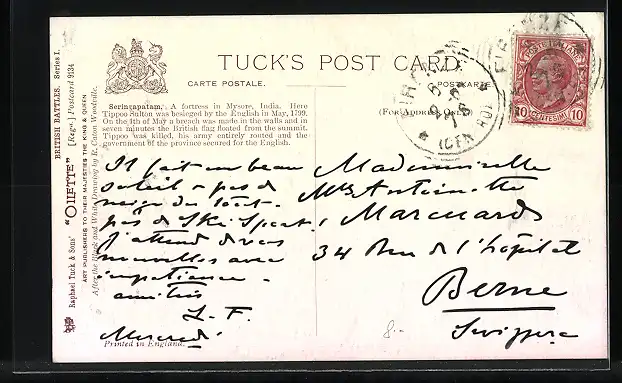 TUCK'S POST CARD
CARTE POSTALE.
POSTKARTE.
(For Address Only.)
Seringapatam. A fortress in Mysore, India. Here
Tippoo Sultan was besieged by the English in May, 1799.
On the 5th of May a breach was made in the walls and in
seven minutes the British flag floated from the summit.
Tippoo was killed, his army entirely routed and the
government of the province secured for the English.
Il fait un beau
soleil & pas de
neige du tout.
pas de Ski Sport!
J'attend de vos
nouvelles avec
impatience.
amitiés
L. F.
Mercredi
Printed in England.
Mademoiselle
Antoinette
Marcuard
34 Rue de l'hôpital
Berne
8.-
POSTE ITALIANE
10 CENTESIMI 10
FIRENZE
BRITISH BATTLES. Series I.
"OILETTE" [Regd.] Postcard 9134
Raphael Tuck & Sons'
ART PUBLISHERS TO THEIR MAJESTIES THE KING & QUEEN
After the Black and White Drawing by R. Caton Woodville.